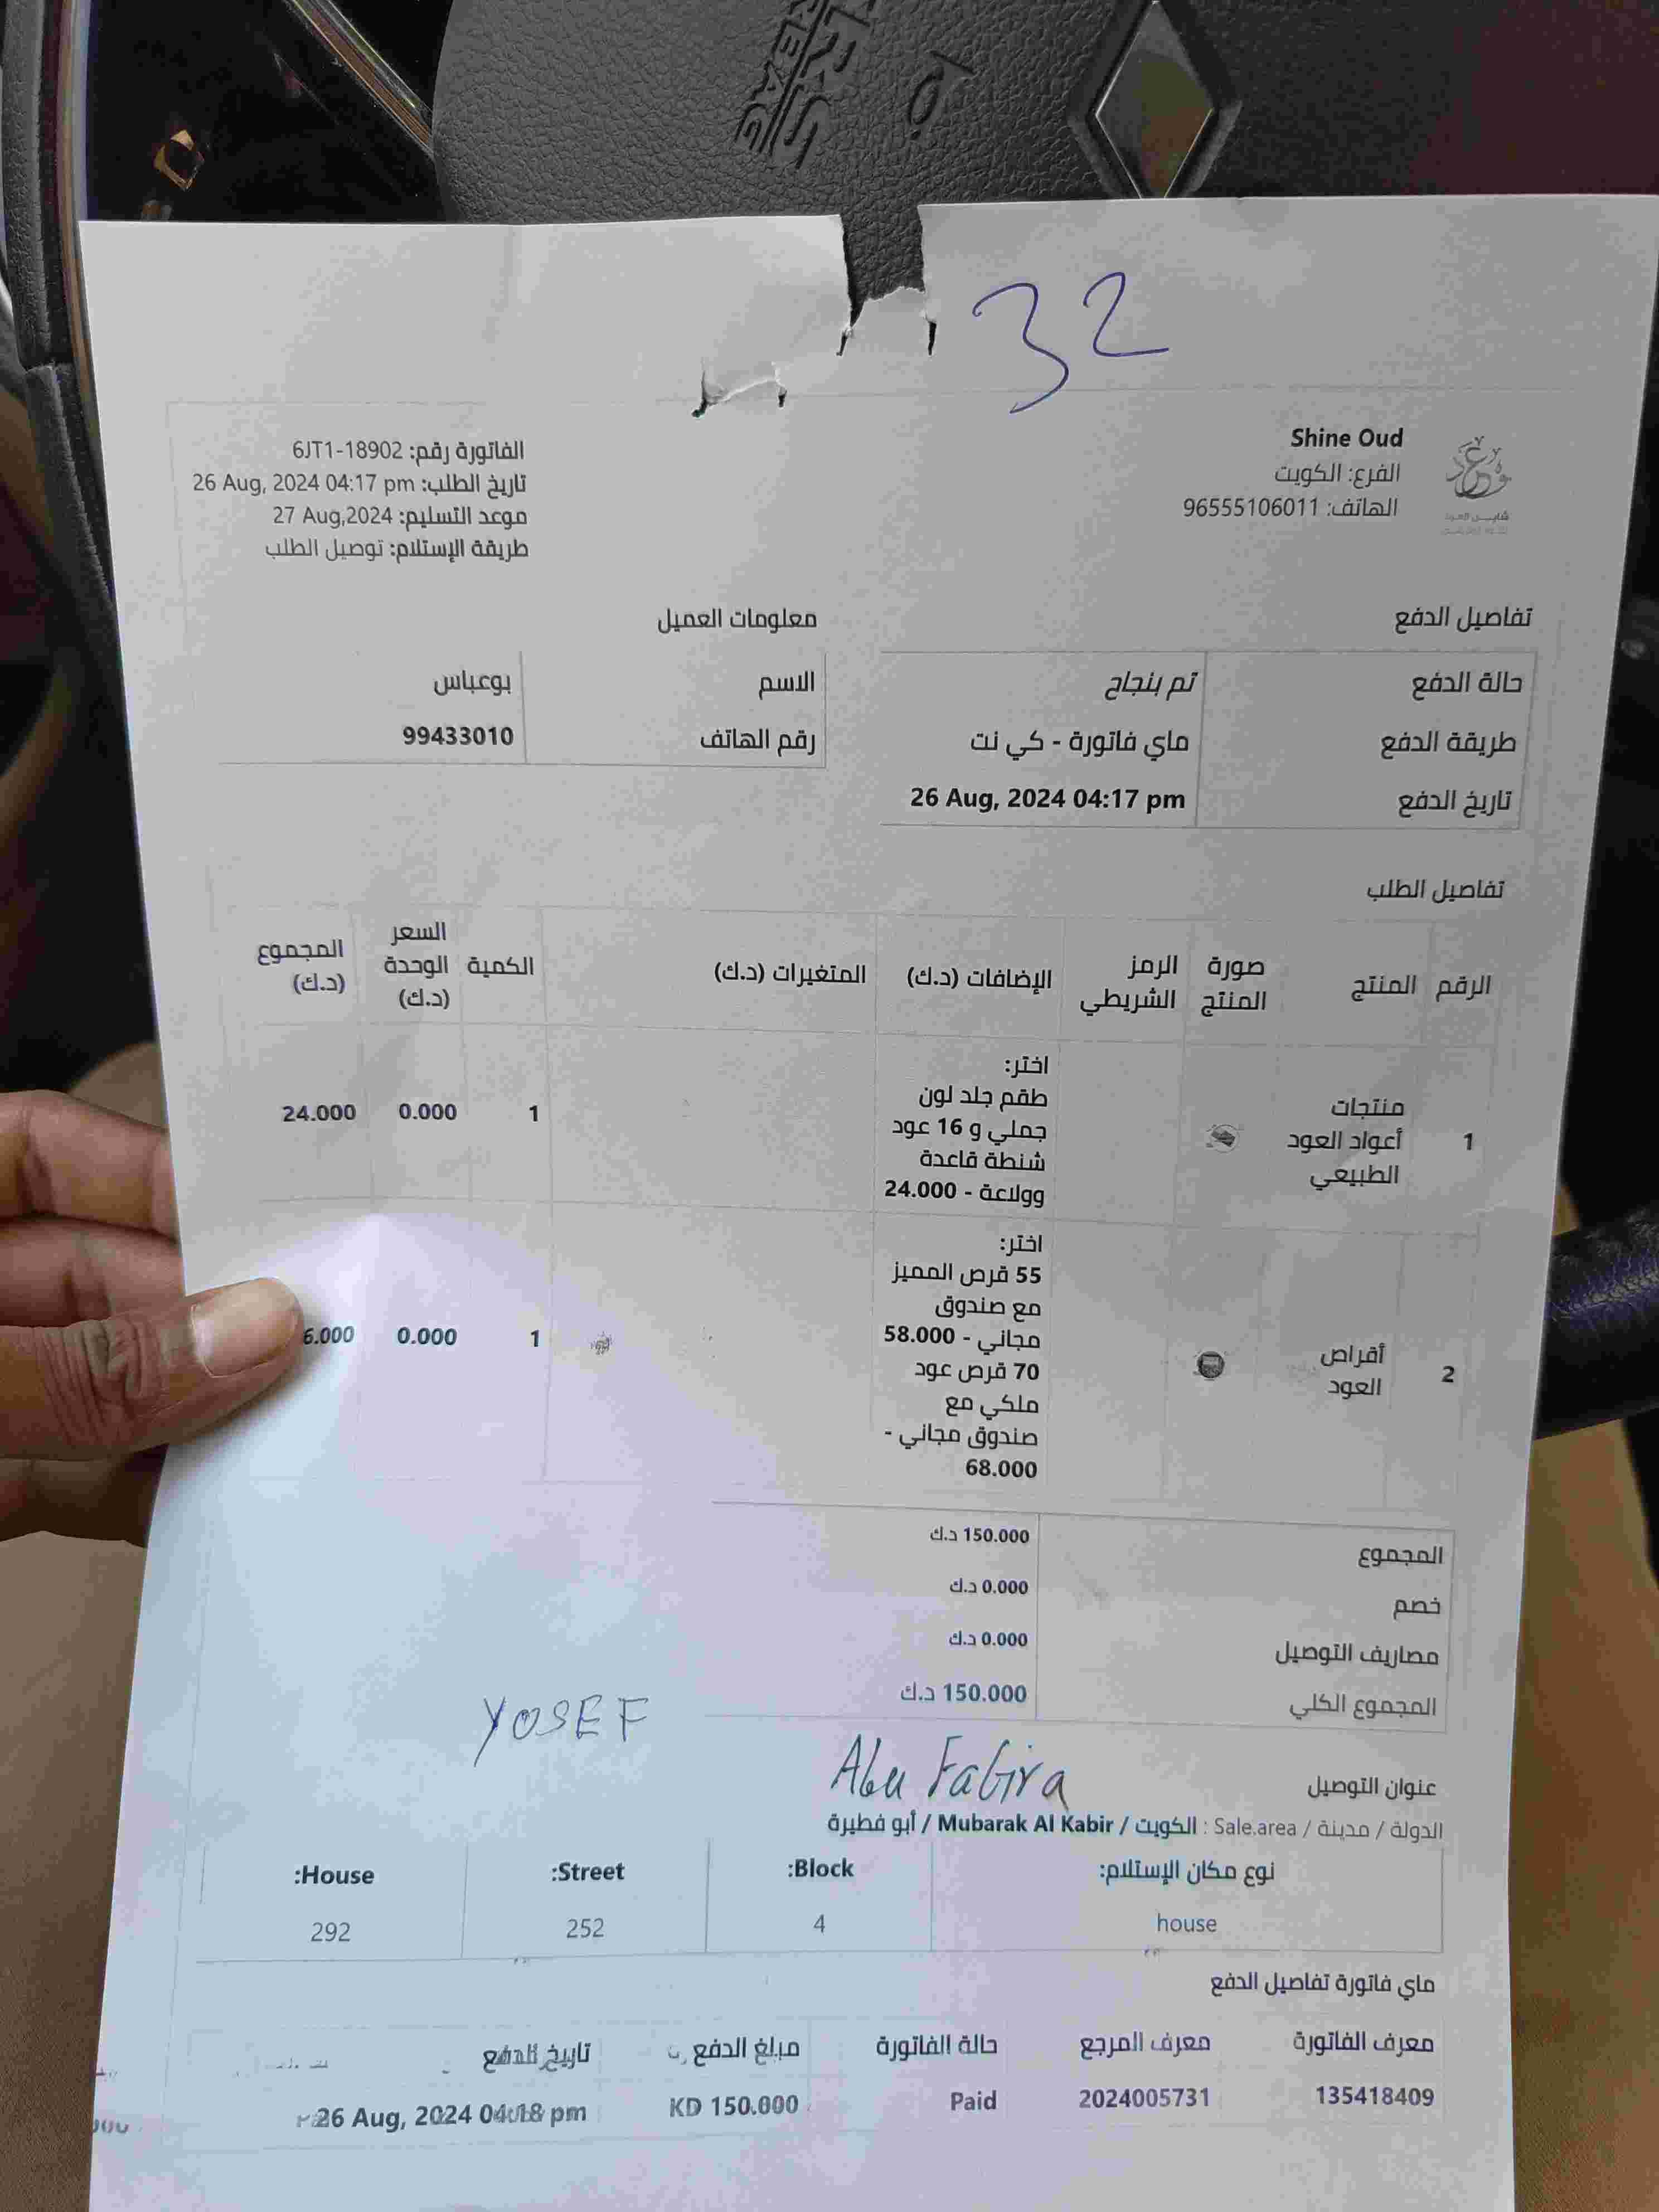 SRS
AIRBAG
32
Shine Oud
الفرع: الكويت
الهاتف: 96555106011
شايــن العود
الفاتورة رقم: 6JT1-18902
تاريخ الطلب: 26 Aug, 2024 04:17 pm
موعد التسليم: 27 Aug,2024
طريقة الإستلام: توصيل الطلب
تفاصيل الدفع
حالة الدفع تم بنجاح
طريقة الدفع ماي فاتورة - كي نت
تاريخ الدفع 26 Aug, 2024 04:17 pm
معلومات العميل
الاسم بوعباس
رقم الهاتف 99433010
تفاصيل الطلب
الرقم المنتج صورة المنتج الرمز الشريطي الإضافات (د.ك) المتغيرات (د.ك) الكمية السعر الوحدة (د.ك) المجموع (د.ك)
1
منتجات
أعواد العود
الطبيعي
اختر:
طقم جلد لون
جملي و 16 عود
شنطة قاعدة
وولاعة - 24.000
1 0.000 24.000
2
أقراص
العود
اختر:
55 قرص المميز
مع صندوق
مجاني - 58.000
70 قرص عود
ملكي مع
صندوق مجاني -
68.000
1 0.000 6.000
المجموع 150.000 د.ك
خصم 0.000 د.ك
مصاريف التوصيل 0.000 د.ك
المجموع الكلي 150.000 د.ك
YOSEF
Abu Fatira
عنوان التوصيل
الدولة / مدينة / Sale.area : الكويت / Mubarak Al Kabir / أبو فطيرة
نوع مكان الإستلام: Block: Street: House:
house 4 252 292
ماي فاتورة تفاصيل الدفع
معرف الفاتورة معرف المرجع حالة الفاتورة مبلغ الدفع تاريخ الدفع
135418409 2024005731 Paid KD 150.000 26 Aug, 2024 04:18 pm